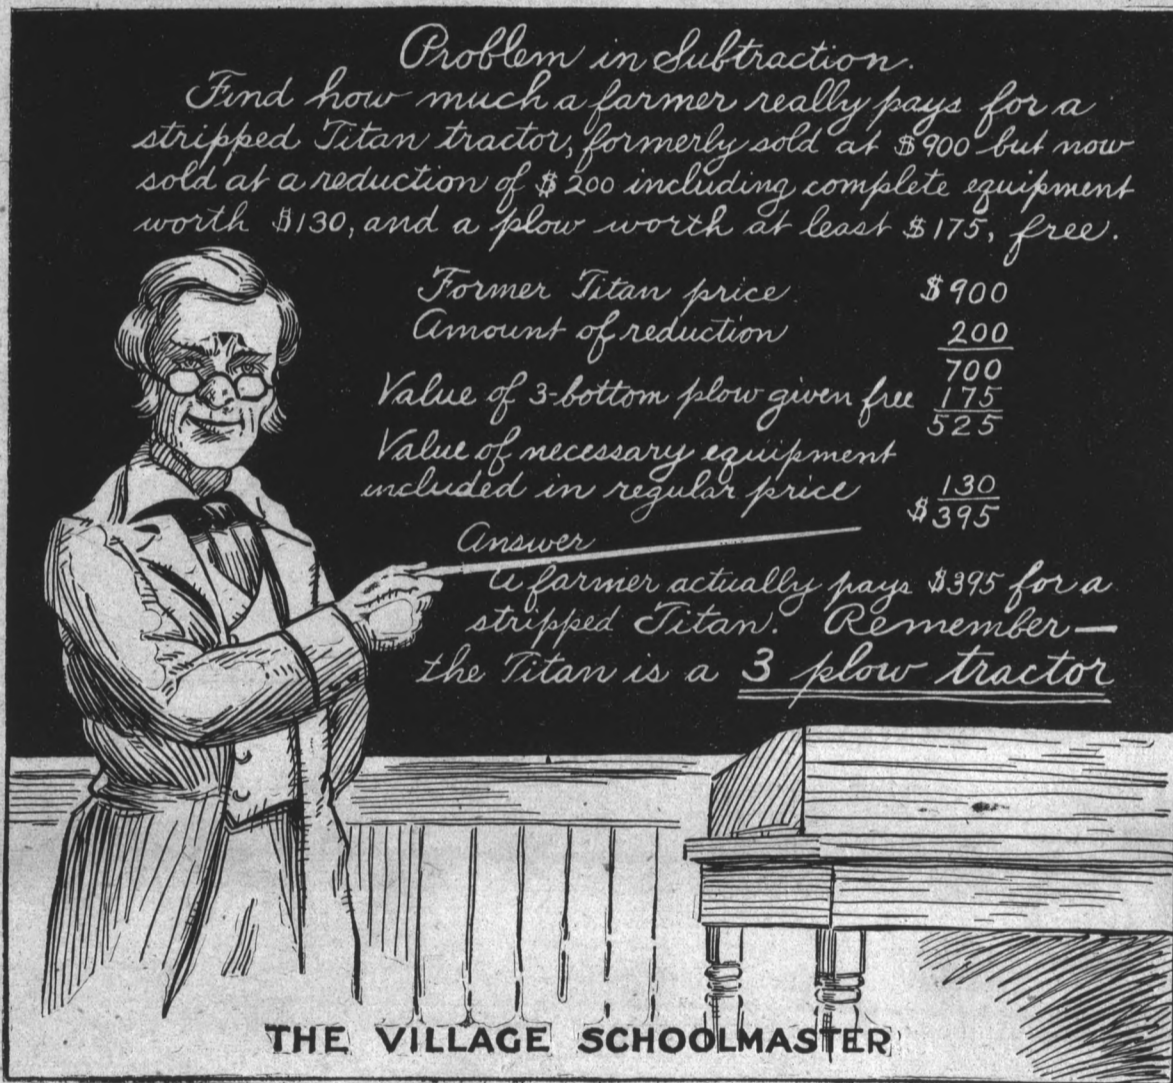 Problem in Subtraction.
Find how much a farmer really pays for a
stripped Titan tractor, formerly sold at $900 but now
sold at a reduction of $200 including complete equipment
worth $130, and a plow worth at least $175, free.
Former Titan price $900
Amount of reduction 200
700
Value of 3-bottom plow given free 175
525
Value of necessary equipment
included in regular price 130
$395
Answer
A farmer actually pays $395 for a
stripped Titan. Remember—
the Titan is a 3 plow tractor
THE VILLAGE SCHOOLMASTER